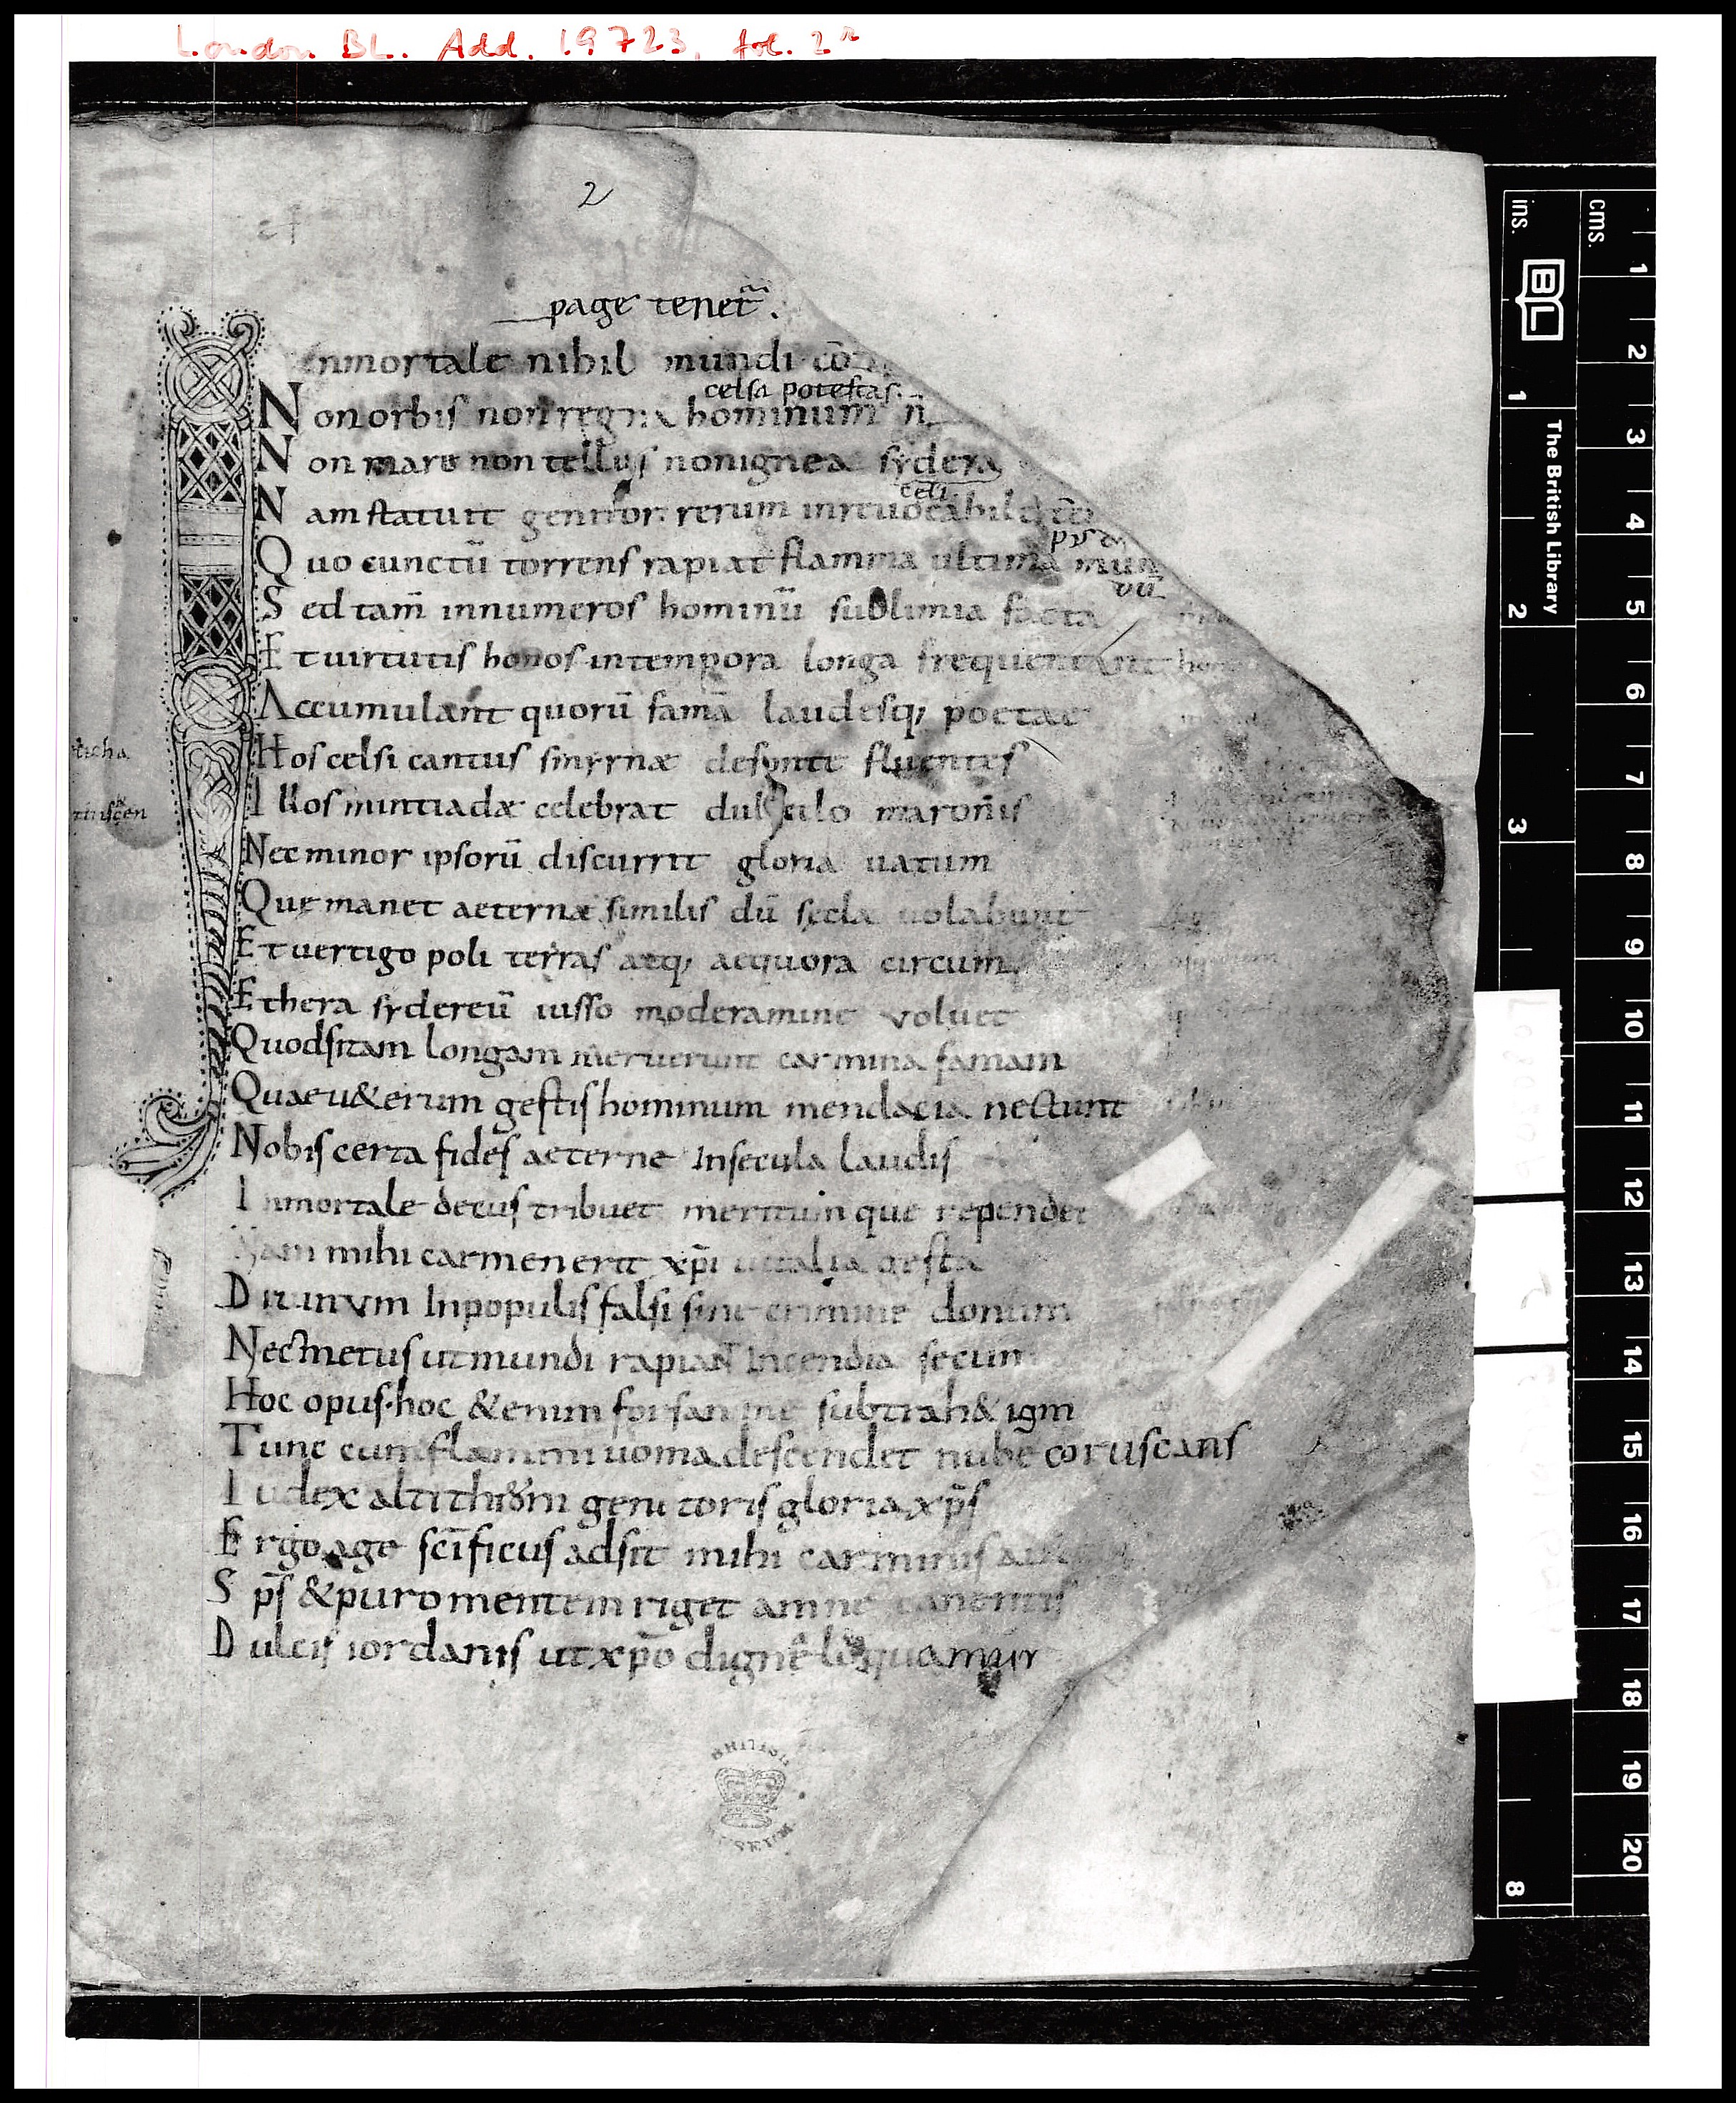 London BL. Add. 19723, fol. 2r
2
page tenet̄.
Inmortale nihil mundi cō
celsa potestas.
Non orbis non regna hominum n̄
Non mare non tellus non ignea sydera
celi.
Nam statuit genitor rerum inreuocabile tē
Quo cunctū torrens rapiat flamma ultima mun
dū
Sed tam̄ innumeros hominū sublimia facta
Et uirtutis honos in tempora longa frequentant
Accumulant quorū famā laudesq; poetae
Hos celsi cantus smyrnæ de fonte fluentes
Illos minciadæ celebrat dulcedo maronis
Nec minor ipsorū discurrit gloria uatum
Quę manet aeternæ similis dū secla uolabunt
Et uertigo poli terras atq; aequora circum
Ethera sydereū iusso moderamine voluet
Quod si tam longam meruerunt carmina famam
Quae u&erum gestis hominum mendacia nectunt
Nobis certa fides aeterne In secula laudis
Inmortale decus tribuet meritumque rependet
Nam mihi carmen erit xp̄i uitalia gesta
Diuinvm In populis falsi sine crimine donum
Nec metus ut mundi rapiant Incendia secum
Hoc opus·hoc &enim forsan me subtrah& igni
Tunc cum flammiuoma descendet nube coruscans
Iudex altithroni genitoris gloria xp̄s
Ergo age sc̄ificus adsit mihi carminis
Sp̄s & puro mentem riget amne canentis
Dulcis iordanis ut xp̄o digne loquamur
BRITISH
MUSEUM
ins.
cms.
BL
The British Library
1
2
3
8
1
2
3
4
5
6
7
8
9
10
11
12
13
14
15
16
17
18
19
20